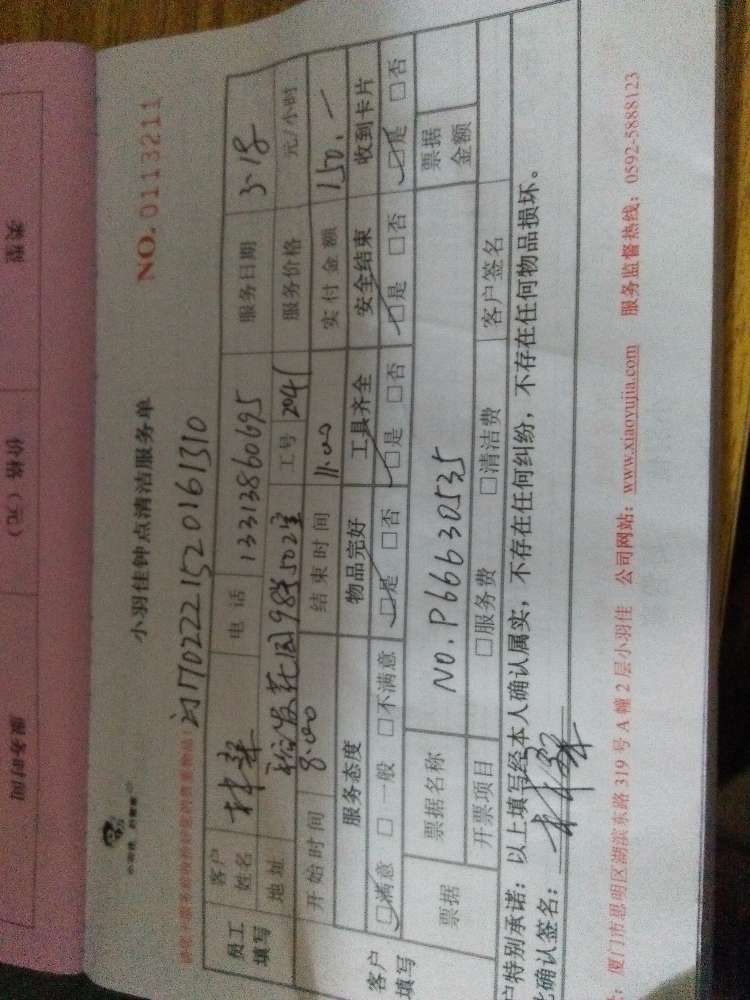 类型
价格（元）
服务时间
小羽佳钟点清洁服务单
NO. 0113211
1702221520161310
员工填写
客户姓名 林翠 电话 13313860695 服务日期 3-18
地址 花园98号502室 工号 2041 服务价格 元/小时
开始时间 8:00 结束时间 11:00 实付金额 150.-
客户填写
服务态度 物品完好 工具齐全 安全结束 收到卡片
☑满意 □一般 □不满意 ☑是 □否 ☑是 □否 ☑是 □否 ☑是 □否
票据 票据名称 NO.P66630535 票据金额
开票项目 □服务费 □清洁费 客户签名
户特别承诺：以上填写经本人确认属实，不存在任何纠纷，不存在任何物品损坏。
此确认签名：林翠
：厦门市思明区湖滨东路 319 号 A 幢 2 层小羽佳 公司网站：www.xiaoyujia.com 服务监督热线：0592-5888123